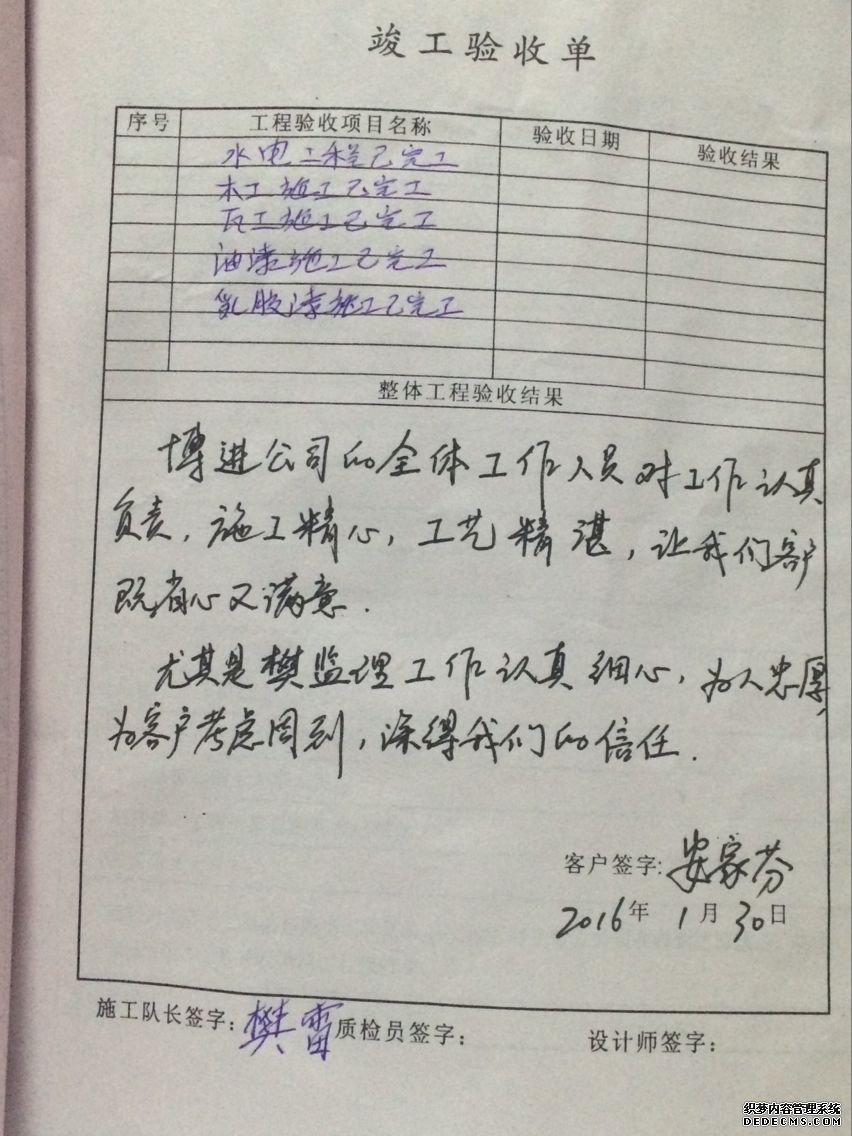 竣工验收单
序号 工程验收项目名称 验收日期 验收结果
水电工程已完工
木工施工已完工
瓦工施工已完工
油漆施工已完工
乳胶漆施工已完工
整体工程验收结果
博进公司的全体工作人员对工作认真
负责，施工精心，工艺精湛，让我们客户
既省心又满意．
尤其是樊监理工作认真细心，为人忠厚，
为客户考虑周到，深得我们的信任．
客户签字：安家芬
2016年 1月30日
施工队长签字：樊雷 质检员签字： 设计师签字：
织梦内容管理系统
DEDECMS.COM